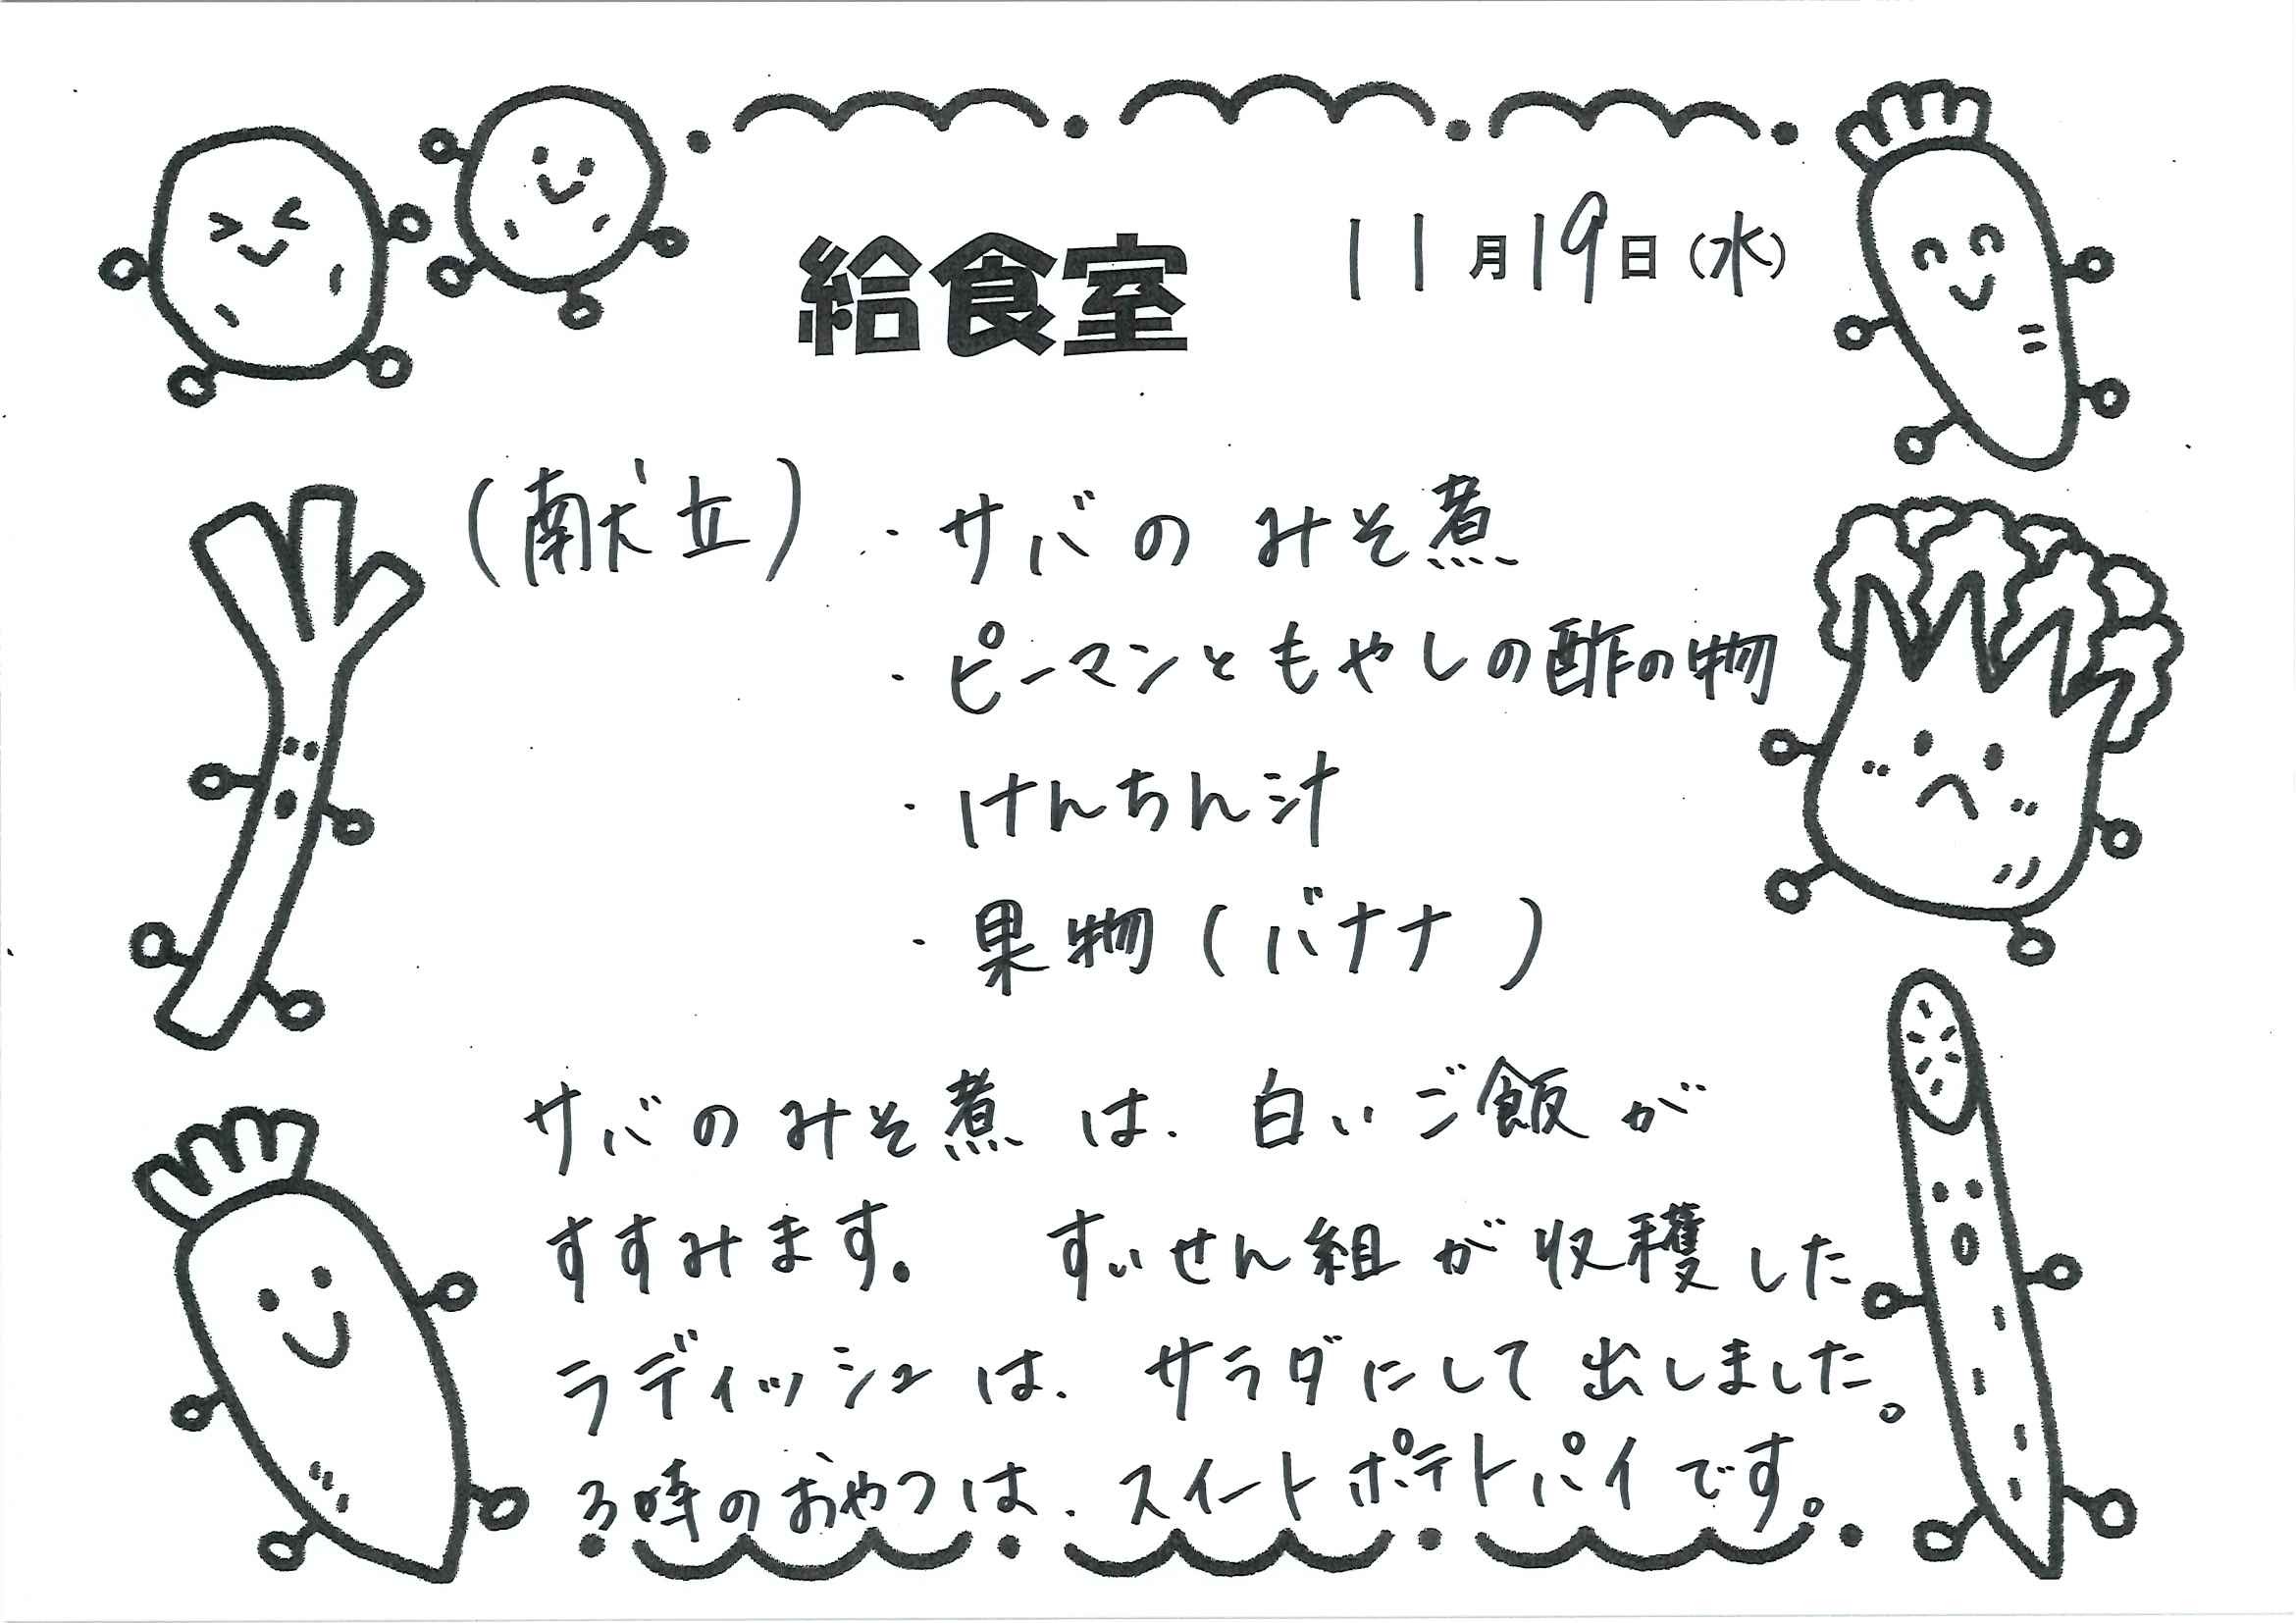 給食室 11月19日(水)
(献立)・サバのみそ煮
・ピーマンともやしの酢の物
・けんちん汁
・果物(バナナ)
サバのみそ煮は、白いご飯が
すすみます。 すいせん組が収穫した
ラディッシュは、サラダにして出しました。
3時のおやつは、スイートポテトパイです。